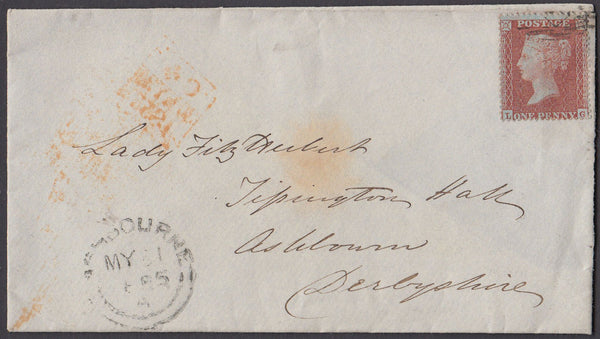 POSTAGE
ONE PENNY
Lady FitzHerbert
Tissington Hall
Ashbourn
Derbyshire
ASHBOURNE
MY 31
1855
A